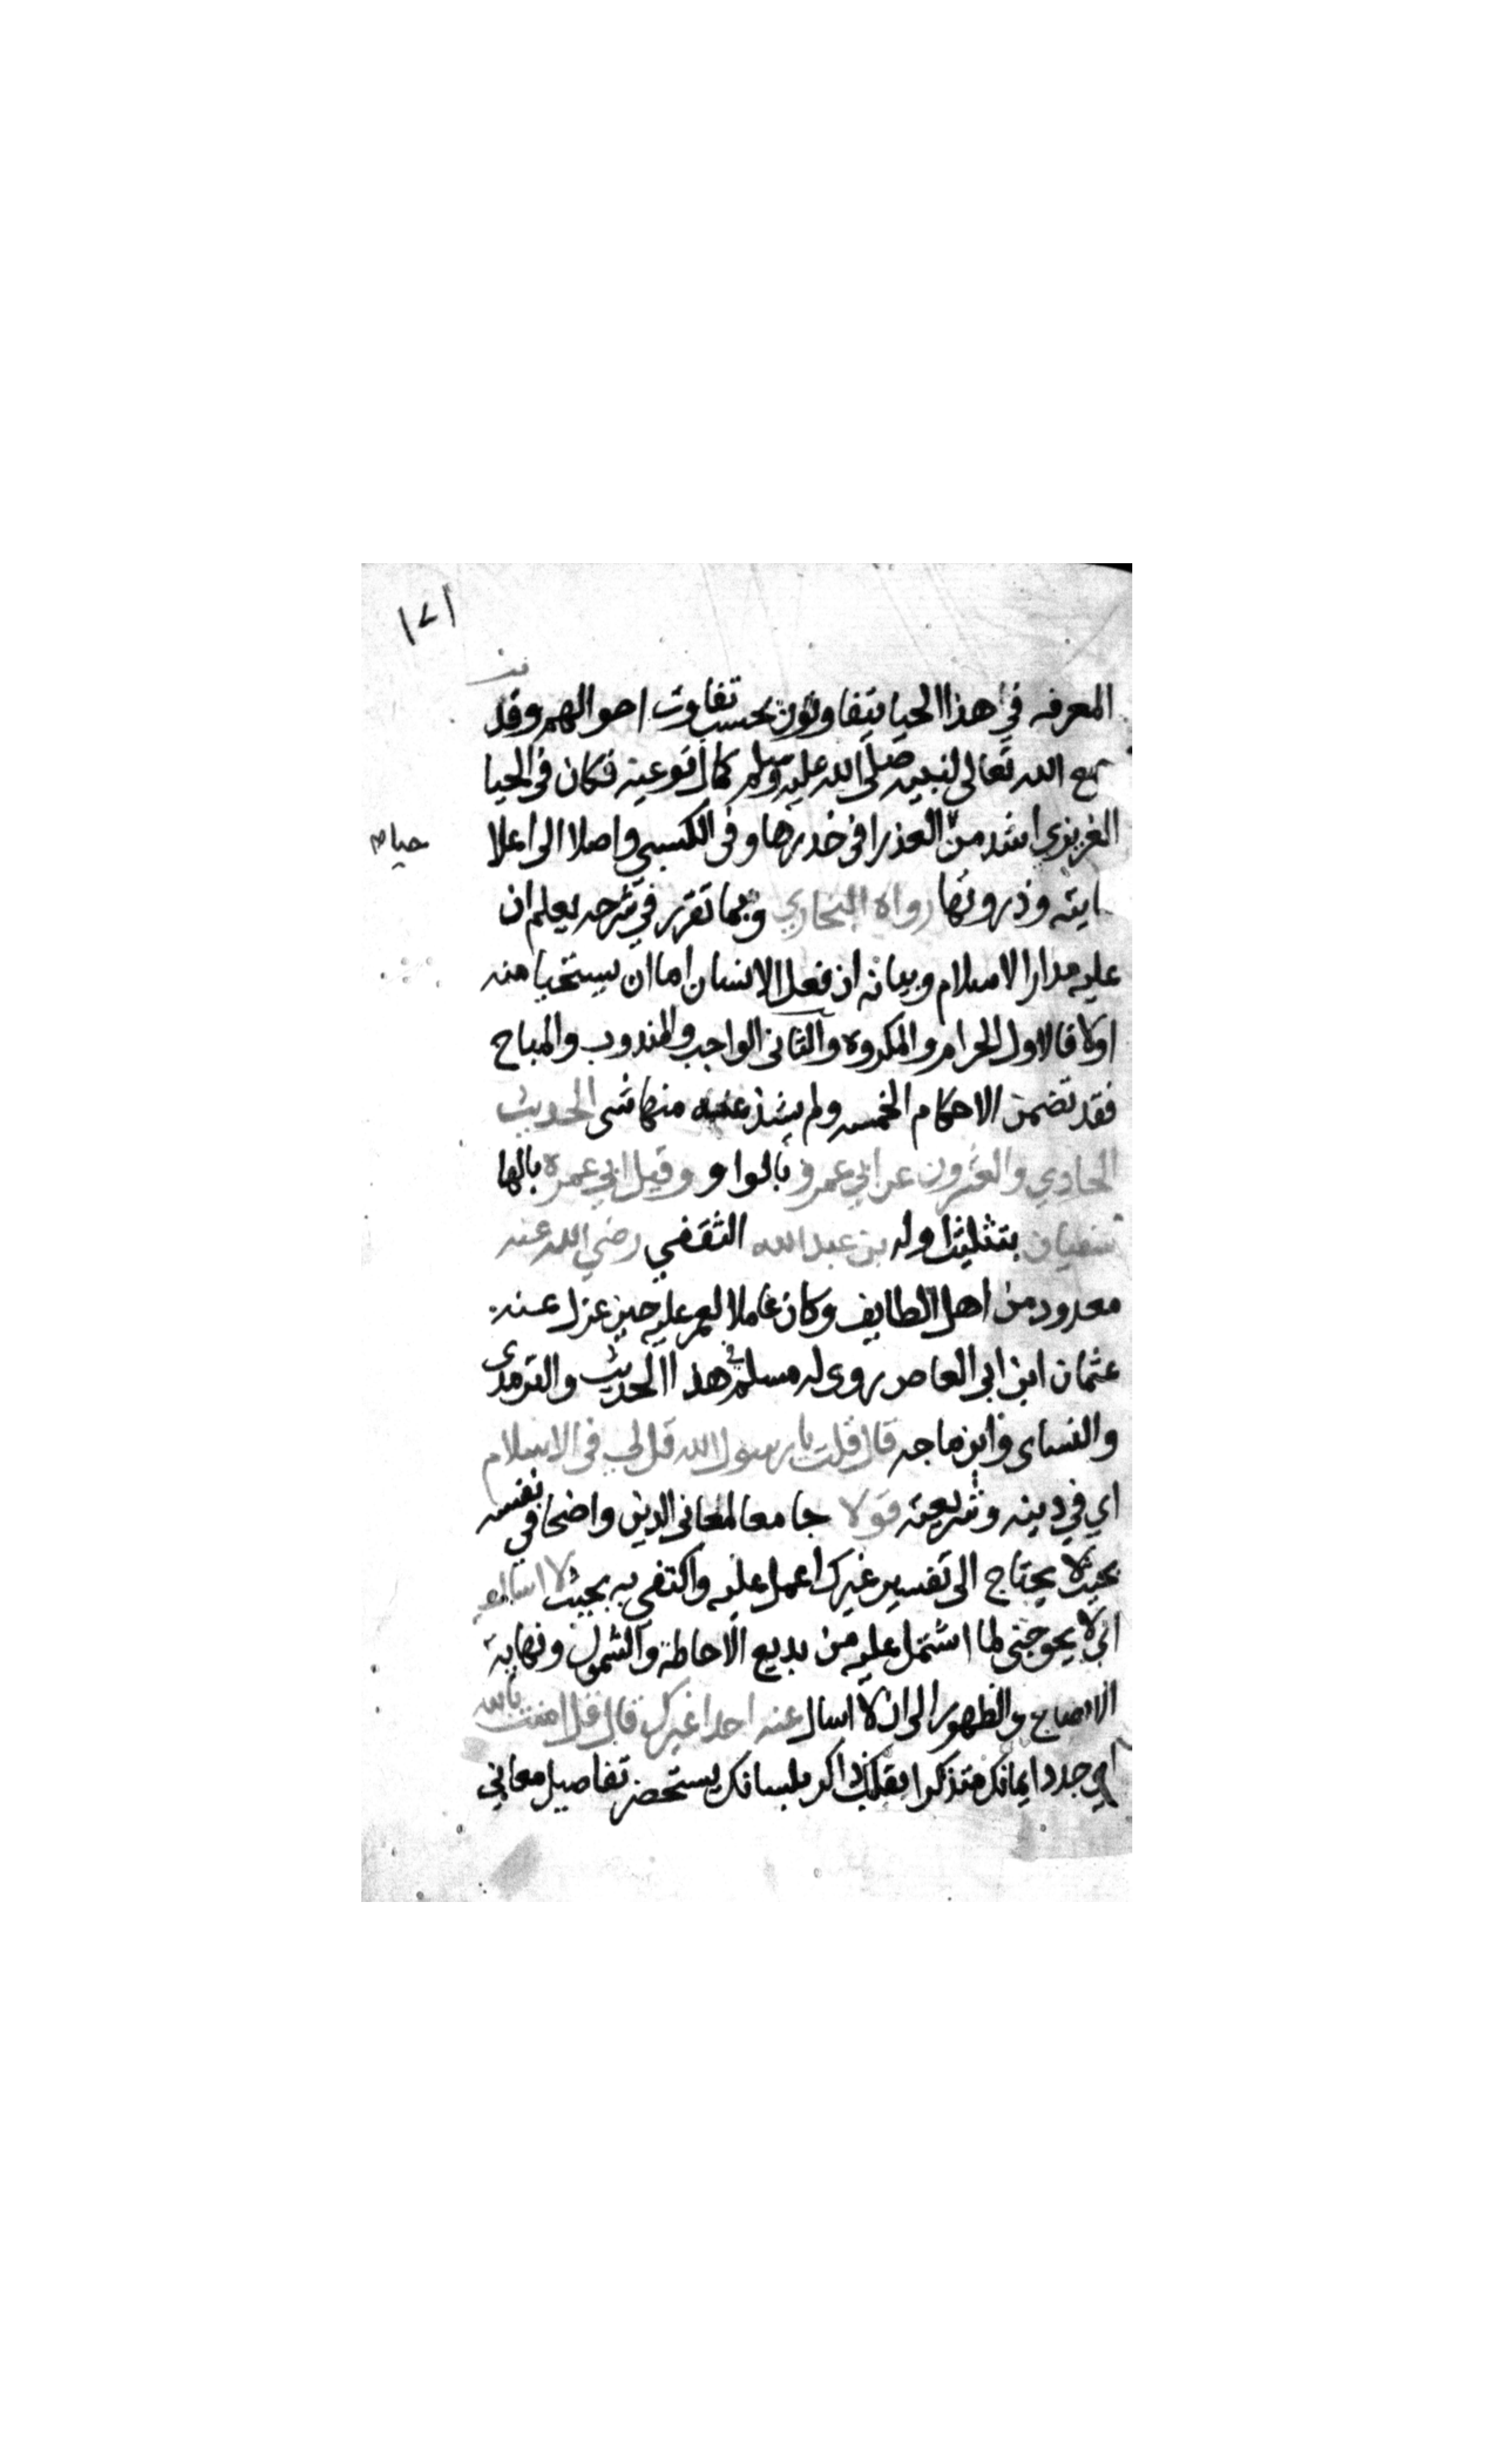 ١٧١
المعرفه في هذا الحيا يتفاوتون بحسب تفاوت احوالهم وقد
جمع الله تعالى لنبيه صلى الله عليه وسلم كمال نوعيه فكان في الحيا
الغريزي اشد من العذرا في خدرها وفي الكسبي واصلا الى اعلا
حيا م
ايته وذروتها رواه البخاري وبما تقرر في شرحه يعلم ان
عليه مدار الاسلام وبيانه ان فعل الانسان اما ان يستحيا منه
اولا فالاول الحرام والمكروه والثاني الواجب والمندوب والمباح
فقد تضمن الاحكام الخمسه ولم يشذ عنه منها شي الحديث
الحادي والعشرون عن ابي عمرو بالواو وقيل ابي عمرة بالها
سفيان بتثليث اوله بن عبد الله الثقفي رضي الله عنه
معدود من اهل الطايف وكان عاملا لعمر عليه حين عزل عنه
عثمان ابن ابي العاص روى له مسلم في هذا الحديث والترمذي
والنساي وابن ماجه قال قلت يا رسول الله قل لي في الاسلام
اي في دينه وشريعته قولا جامعا لمعاني الدين واضحا في نفسه
بحيث لا يحتاج الى تفسير غيرك اعمل عليه واكتفي به بحيث لا اسال
اي لا يحوجني لما اشتمل عليه من بديع الاحاطة والشمول ونهاية
الايضاح والظهور الى ان لا اسال عنه احدا غيرك قال قل امنت بالله
اي جدد ايمانك متذكرا بقلبك ذاكر بلسانك يستحضر تفاصيل معاني